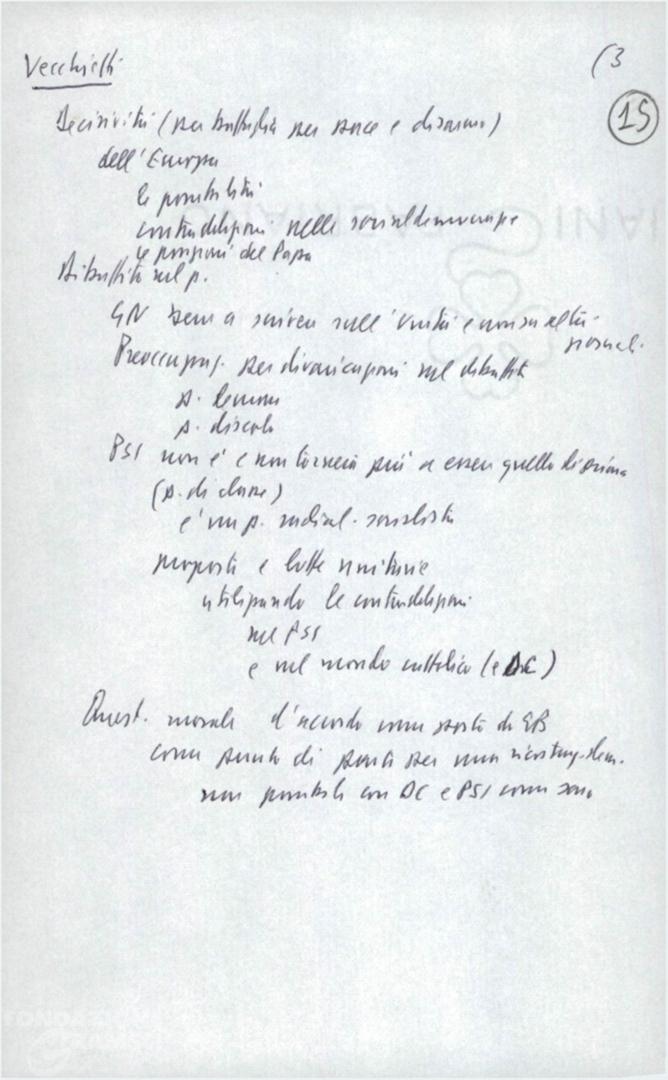 Vecchietti
(3
15
Decisività (per battaglia per pace e disarmo)
dell'Europa
le possibilità
contraddizioni nelle socialdemocrazie
le posizioni del Papa
Dibattito sul p.
GN bene a scrivere sull'Unità e non su altri
Preoccupaz. per divaricazioni sul dibattito
p.
p.
PSI non è e non tornerà più a essere quello di prima
(p. di classe)
è un p. radical-socialista
proposte e lotte unitarie
utilizzando le contraddizioni
nel PSI
e nel mondo cattolico (e DC)
Quest. morale d'accordo come posta da EB
come punto di
non possibile con DC e PSI come sono
FONDAZIONE